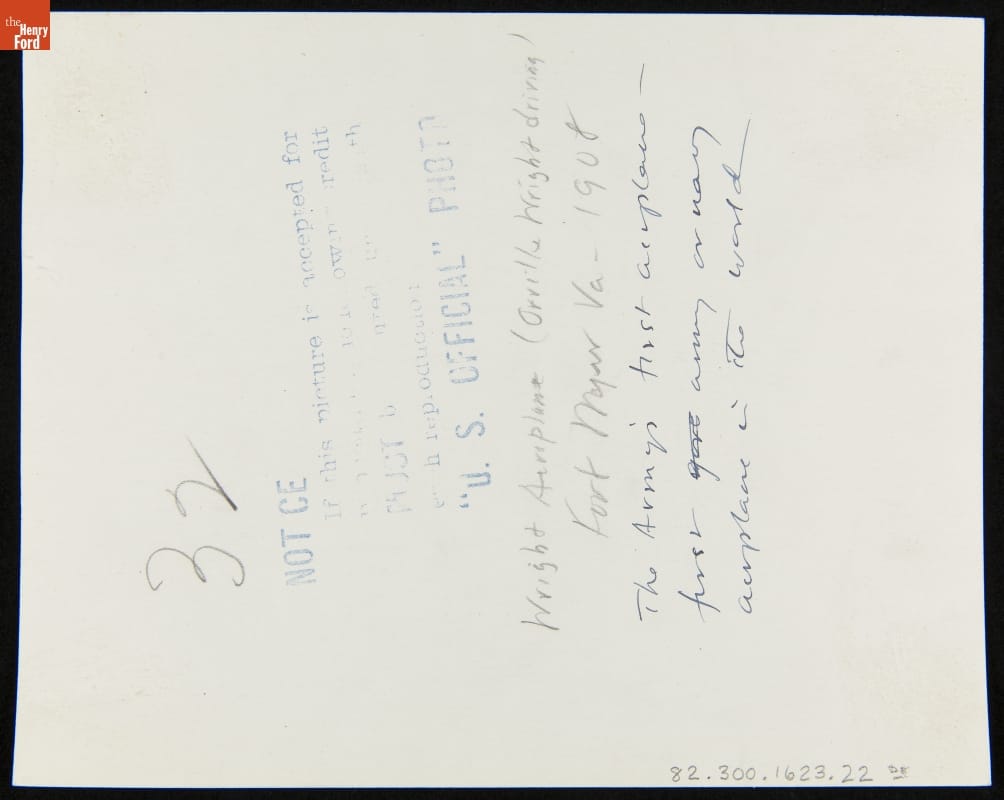 the
Henry
Ford
32
NOTICE
If this picture is accepted for
own credit
used
MUST b
reproduction
"U. S. OFFICIAL" PHOTO
Wright Airplane (Orville Wright driving)
Fort Myer Va - 1908
The Army's first aeroplane -
first army or navy
aeroplane in the world
82.300.1623.22